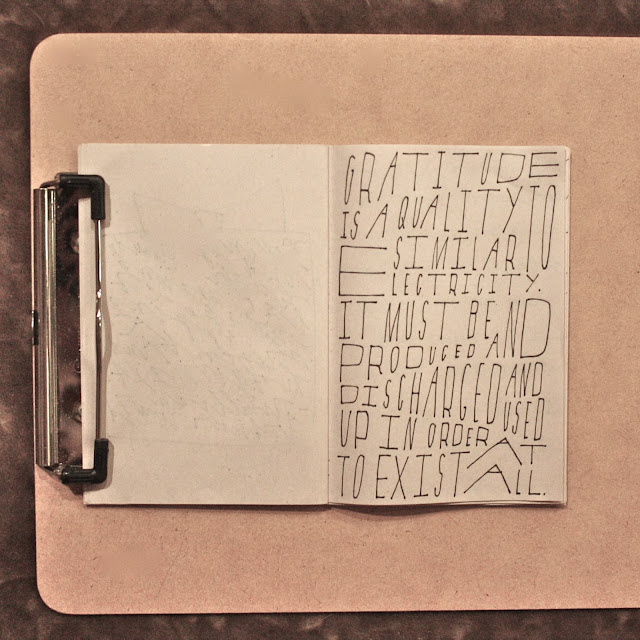 GRATITUDE
IS A QUALITY
SIMILAR TO
ELECTRICITY.
IT MUST BE
PRODUCED AND
DISCHARGED AND USED
UP IN ORDER
TO EXIST AT ALL.